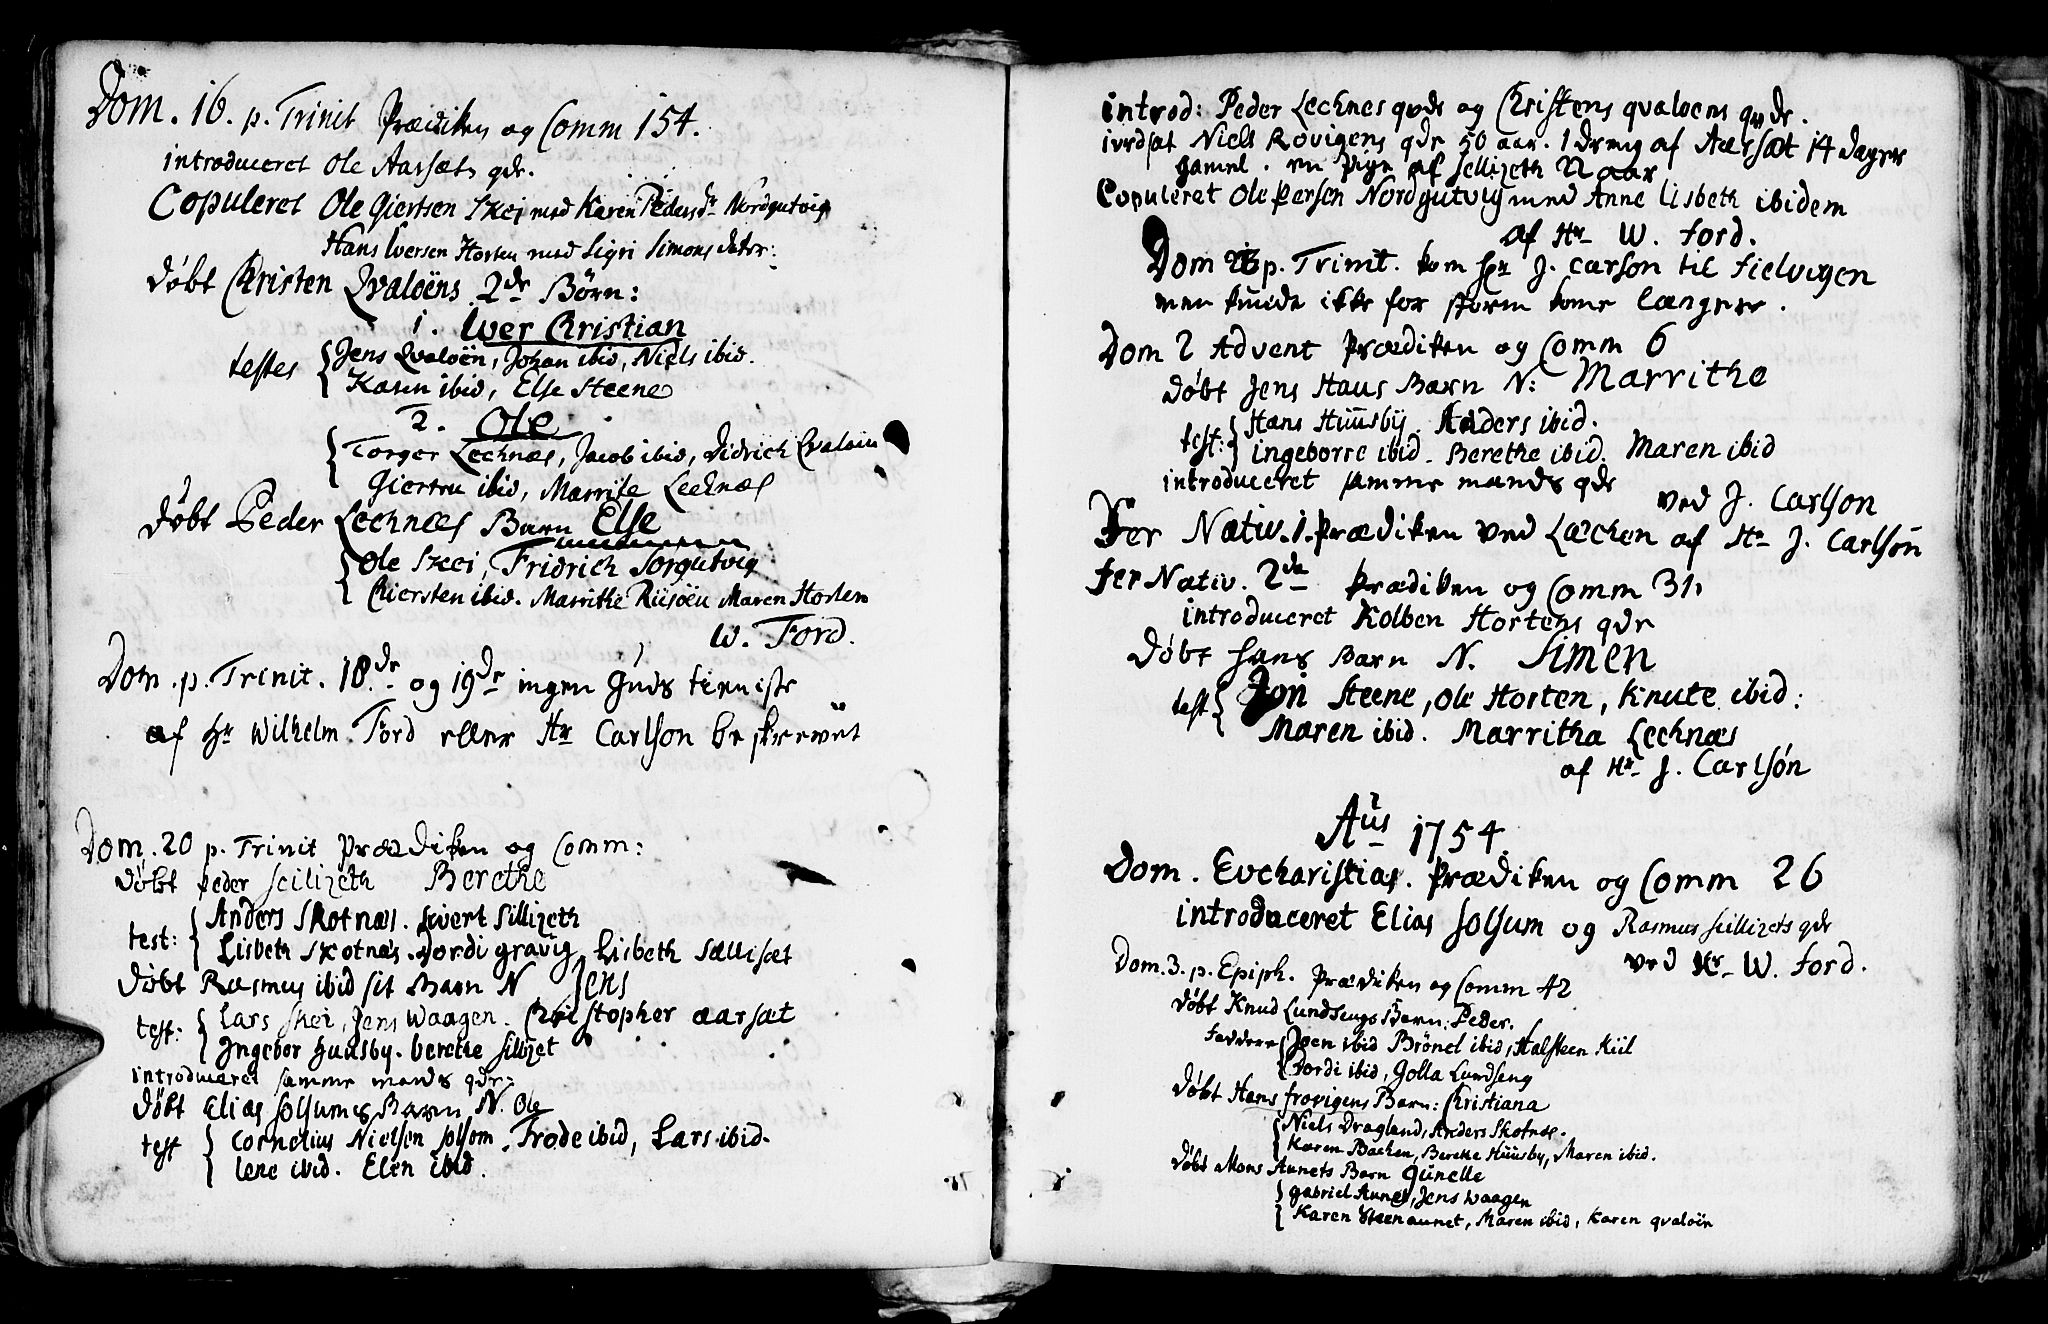 Dom. 16. p. Trinit Prædiken og Comm 154.
introduceret Ole Aarsæts qde.
Copuleret Ole Giertsen Skei med Karen Pedersdr Nordgutvig
Hans Iversen Horten med Sigri Simons dater:
døbt Christen Qvaløens 2de Børn:
1. Iwer Christian
testes Jens Qvaloën, Johan ibid, Niels ibid.
Karen ibid, Else Steene
2. Ole
Torger Lechnæs, Jacob ibid, Didrich Qvaloin
Giertru ibid, Marrite Lechnæs
døbt Peder Lechnæs Barn Else
Ole Skei, Fridrich Sorgutvig
Chiersten ibid. Marrithe Riisöen Maren Horten
W. Ford.
Dom. p. Trinit. 18de og 19de ingen Guds tieniste
af Hr Wilhelm Ford eller Hr Carlson beskrevet
Dom. 20 p. Trinit Prædiken og Comm:
døbt Peder Seilizeth Berethe
test: Anders Skotnæs. Sivert Sillizeth
Lisbeth Skotnæs. Dordi gravig, Lisbeth Sællisæt
døbt Rasmus ibid sit Barn N Jens
test: Lars Skei, Jens Waagen. Christopher aarsæt
Ingebor Huusby. berethe Sillizet
introduceret samme mands qde:
døbt Elias Solsums Barn N. Ole
test Cornelius Nielsen Solsom. Trode ibid, Lars ibid.
lene ibid. Elen ibid.
introd: Peder Lechnes qvde og Christens qvaloens qvde.
iordsat Niels Rovigens qde 50 aar. 1 dreng af Aarsæt 14 dager
gamel. en Pige af Sellizeth 22 aar
Copuleret Ole Persen Nordgutvig med Anne Lisbeth ibidem
af Hr W. Ford.
Dom p. Trinit. kom Hr J. Carson til Fielvigen
men kunde ikke for storm kome længere.
Dom 2 Advent Prædiken og Comm 6
døbt Jens Haus Barn N: Marrithe
test: Hans Huusby. Anders ibid.
ingeborre ibid. Berethe ibid. Maren ibid
introduceret samme mands qde
ved J. Carlson
Fer Nativ. 1. Prædiken ved Læchen af Hr J. Carlson
Fer Nativ. 2de Prædiken og Comm 31.
introduceret Kolben Hortens qde
Døbt hans Barn N. Simen
test Jon Steene, Ole Horten, Knute ibid:
Maren ibid. Marritha Lechnæs
af Hr J. Carlsón
Aus 1754.
Dom. Evcharistias. Prædiken og Comm 26
introduceret Elias Solsum og Rasmus Sillizets qde
ved Hr W. Ford.
Dom. 3. p. Epiph. Prædiken og Comm 42
døbt Knud Lundsengs Barn: Peder.
Faddere Joen ibid Brönel ibid, Halsteen Kiil
Dordi ibid, Golla Lundseng
Døbt Hans frovigens Barn: Christiana
Niels Dragland, Anders Skotnæs.
Karen Backen, Berethe Huusby, Maren ibid.
døbt Mons Aunets Barn Gunelle
gabriel Aunet, Jens Waagen
Karen Steenaunet, Maren ibid, Karen qvaloin